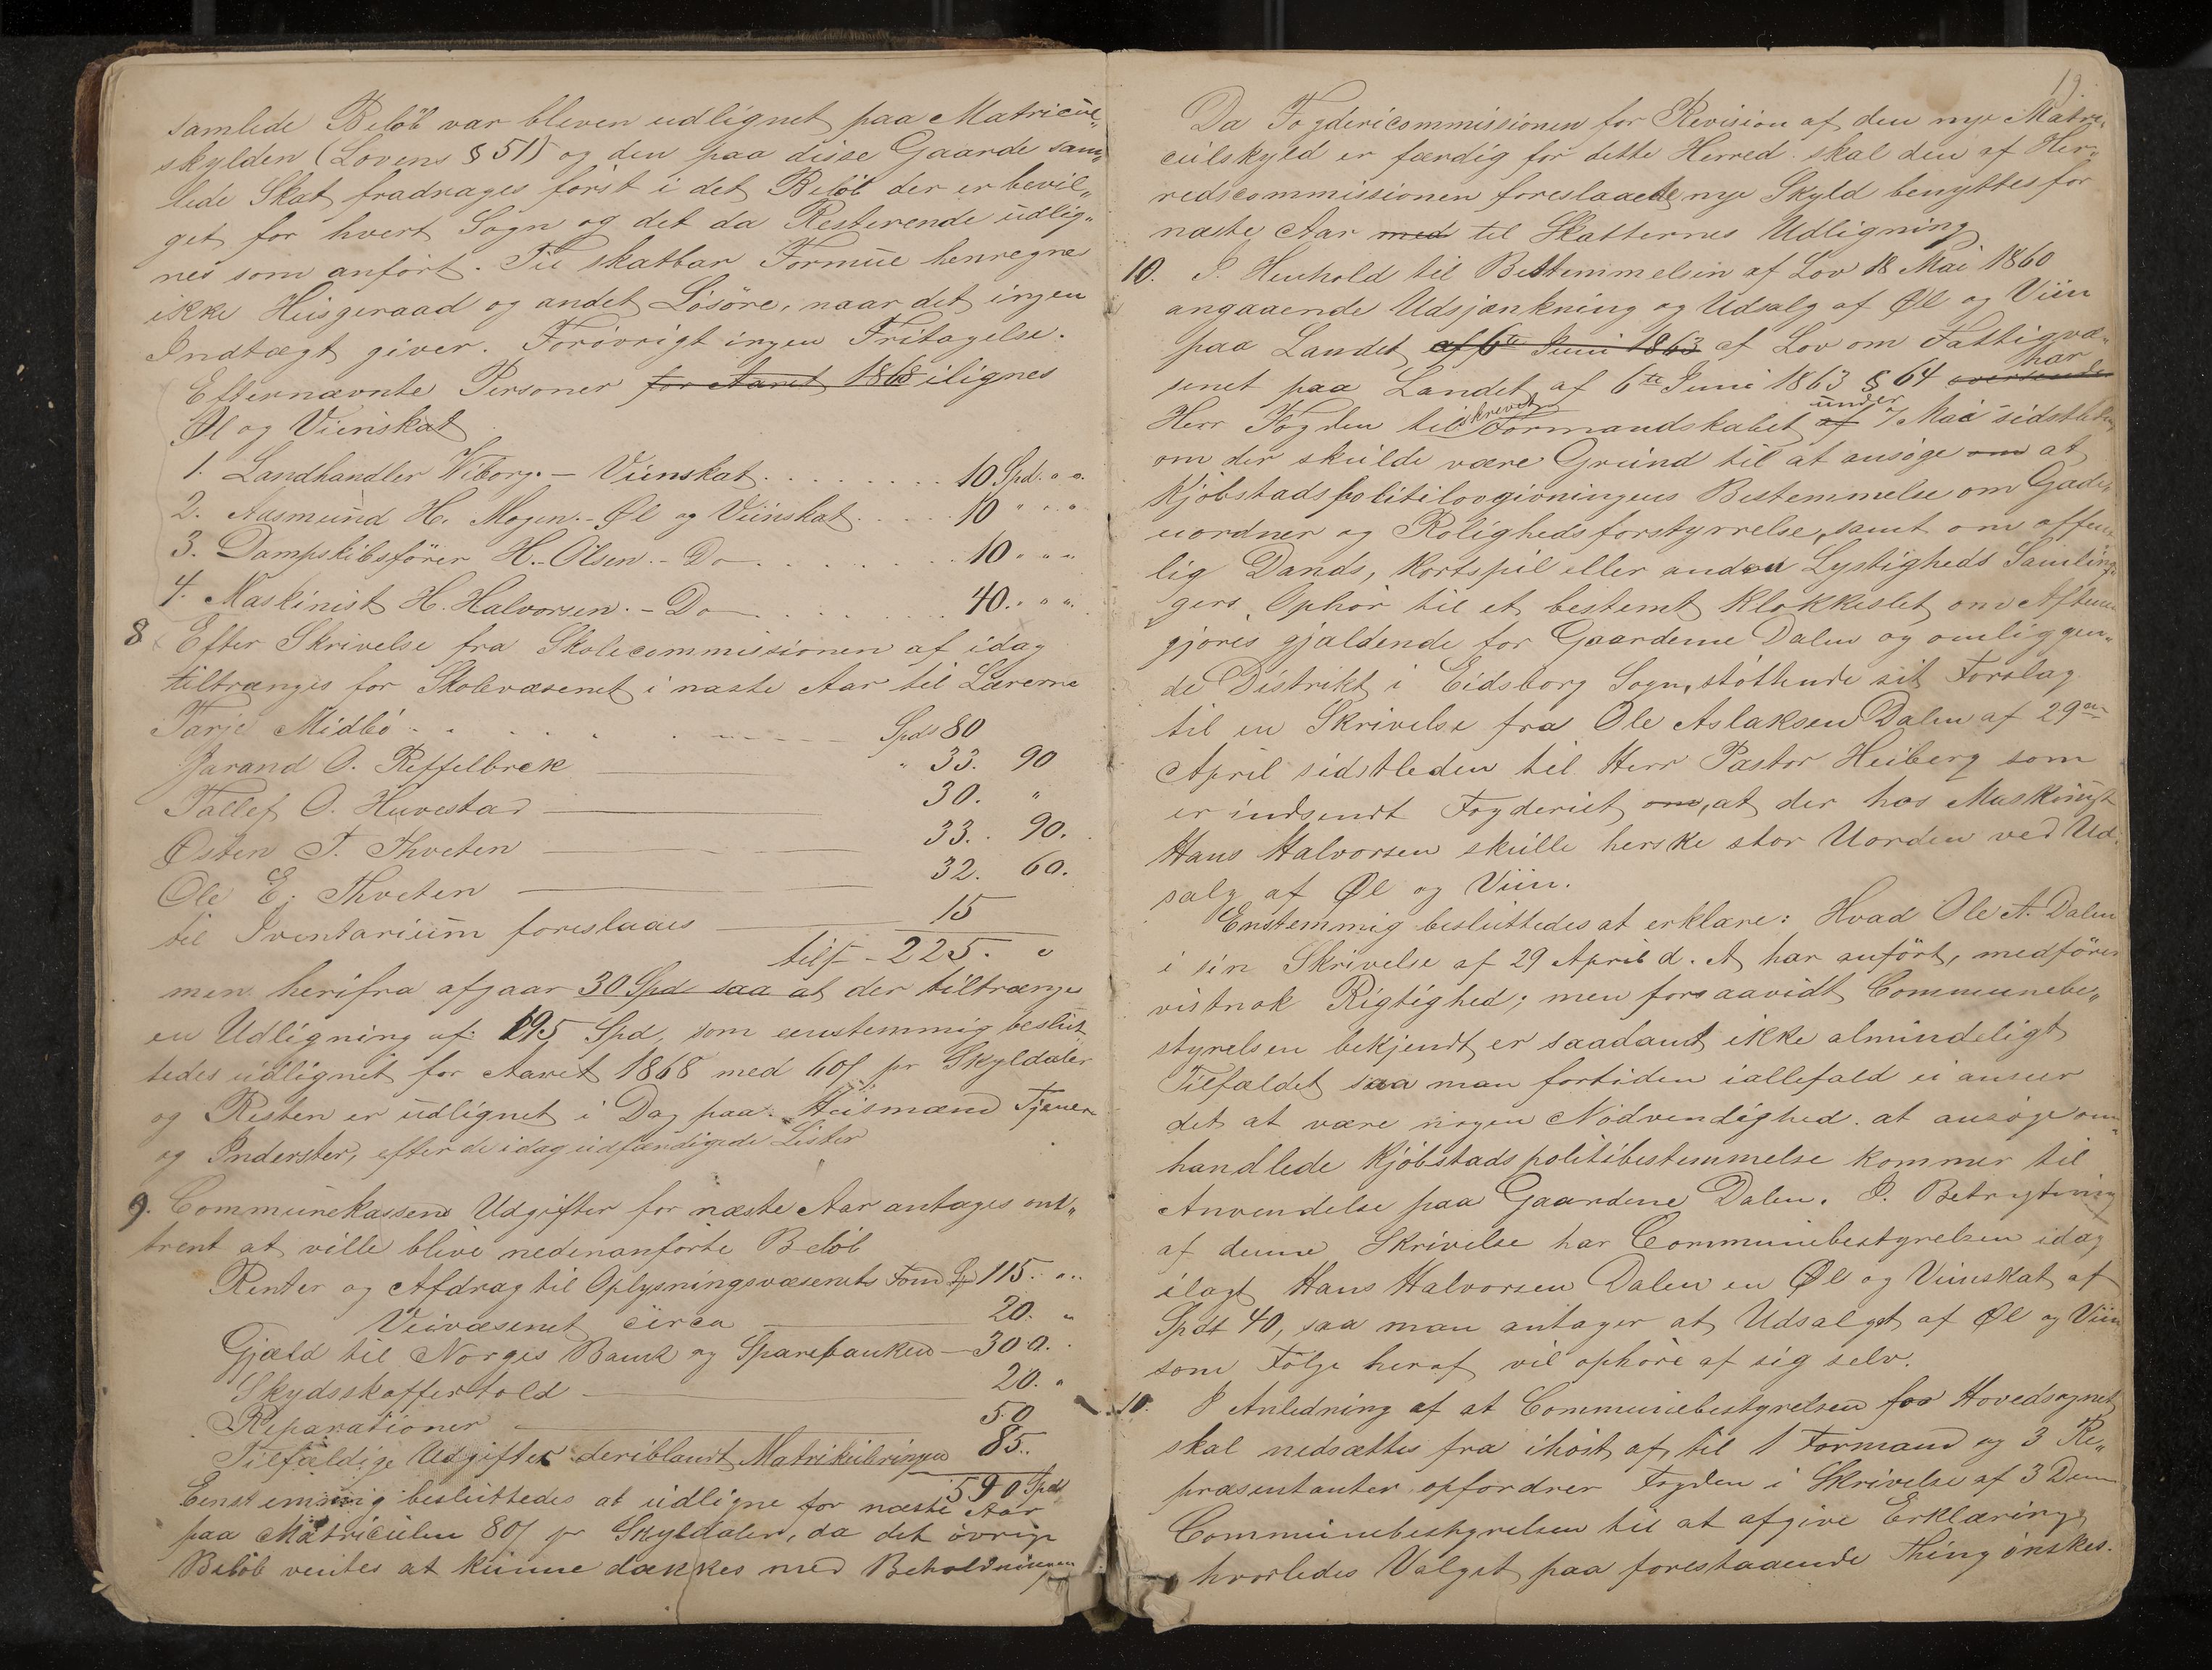 samlede Beløb var bleven udlignet paa Matricul„
skylden (Lovens § 51) og den paa disse Gaarde sam„
lede Skat fradrages først i det Beløb der er bevil„
get for hvert Sogn og det da Resterende udlig„
nes som anført. Til skatbar Formue henregnes
ikke Husgeraad og andet Løsøre, naar det ingen
Indtægt giver. Forøvrigt ingen Fritagelse.
Efternævnte Personer for Aaret 1868 ilignes
Øl og Viinskat
1. Landhandler Wiborg. – Viinskat . . . . . . . . 10 Spd. " "
2. Aasmund H. Mogen. – Øl og Viinskat . . . . 10 " " "
3. Dampskibsfører H. Olsen. – Do . . . . . . . 10 " " "
4. Maskinist H. Halvorsen. – Do . . . . . . . 40. " " "
8 Efter Skrivelse fra Skolecommissionen af idag
tiltrænges for Skolevæsenet i næste Aar til Lærerne
Tarje Midbø . . . . . Spd 80
Jarand O. Reffelbrek " 33. 90
Tallef O. Huvestad 30. "
Østen T. Thveten 33. 90.
Ole E. Thveten 32. 60.
til Inventarium foreslaaes 15
tils – 225. "
men herifra afgaar 30 Spd saa at der tiltrænges
en Udligning af 195 Spd, som eenstemmig beslut„
tedes udlignet for Aaret 1868 med 60 ß pr Skylddaler
og Resten er udlignet i Dag paa Huusmænd Tjenere
og Inderster, efter de idag udfærdigede Lister
9. Communekassens Udgifter for næste Aar antages om„
trent at ville blive nedenanførte Beløb
Renter og Afdrag til Oplysningsvæsenets Fond Sp 115. " "
Veivæsenet circa 20. "
Gjæld til Norges Bank og Sparebanken – 300.
Skydsskafferhold 20. "
Reparationer 50
Tilfældige Udgifter deriblandt Matrikuleringen 85.
590 Spd
Eenstemmig besluttedes at udligne for næste Aar
paa Matriculen 80 ß pr Skylddaler, da det øvrige
Beløb ventes at kunne dækkes med Beholdningen
19.
Da Fogdericommissionen for Revision af den nye Matri„
culskyld er færdig for dette Herred skal den af Her„
redscommissionen foreslaaede nye Skyld benyttes for
næste Aar med til Skatternes Udligning
10. I Henhold til Bestemmelsen af Lov 18 Mai 1860
angaaende Udsjænkning og Udsalg af Øl og Viin
paa Landet af 6te Juni 1863 af Lov om Fattigvæ„
senet paa Landet af 6te Juni 1863 § 64 oversendte har
Herr Fogden tilskrevet Formandskabet af under 7 Mai sidstleden
om der skulde være Grund til at ansøge om at
Kjøbstadspolitilovgivningens Bestemmelse om Gade„
uordner og Rolighedsforstyrrelse, samt om offent„
lig Dands, Kortspil eller anden Lystigheds Samlin„
gers Ophør til et bestemt Klokkeslet om Aftenen
gjøres gjældende for Gaardene Dalen og omliggen„
de Distrikt i Eidsborg Sogn, støttende sit Forslag
til en Skrivelse fra Ole Aslaksen Dalen af 29de
April sidstleden til Herr Pastor Heiberg som
er indsendt Fogderiet om, at der hos Maskinist
Hans Halvorsen skulle herske stor Uorden ved Ud„
salg af Øl og Viin.
Enstemmig besluttedes at erklære: Hvad Ole A. Dalen
i sin Skrivelse af 29 April d. A har anført, medfører
vistnok Rigtighed; men forsaavidt Communebe„
styrelsen bekjendt er saadant ikke almindeligt
Tilfældet saa man fortiden iallefald ei anseer
det at være nogen Nødvendighed at ansøge om„
handlede Kjøbstadspolitibestemmelse kommer til
Anvendelse paa Gaardene Dalen. I Betragtning
af denne Skrivelse har Communebestyrelsen idag
ilagt Hans Halvorsen Dalen en Øl og Viinskat af
Spd 40, saa man antager at Udsalget af Øl og Viin
som Følge heraf vil ophøre af sig selv.
10. I Anledning af at Communebestyrelsen for Hovedsognet
skal nedsættes fra ihøst af, til 1 Formand og 3 Re„
præsentanter opfordrer Fogden i Skrivelse af 3 Dennes
Communebestyrelsen til at afgive Erklæring
hvorledes Valget paa forestaaende Thing ønskes.